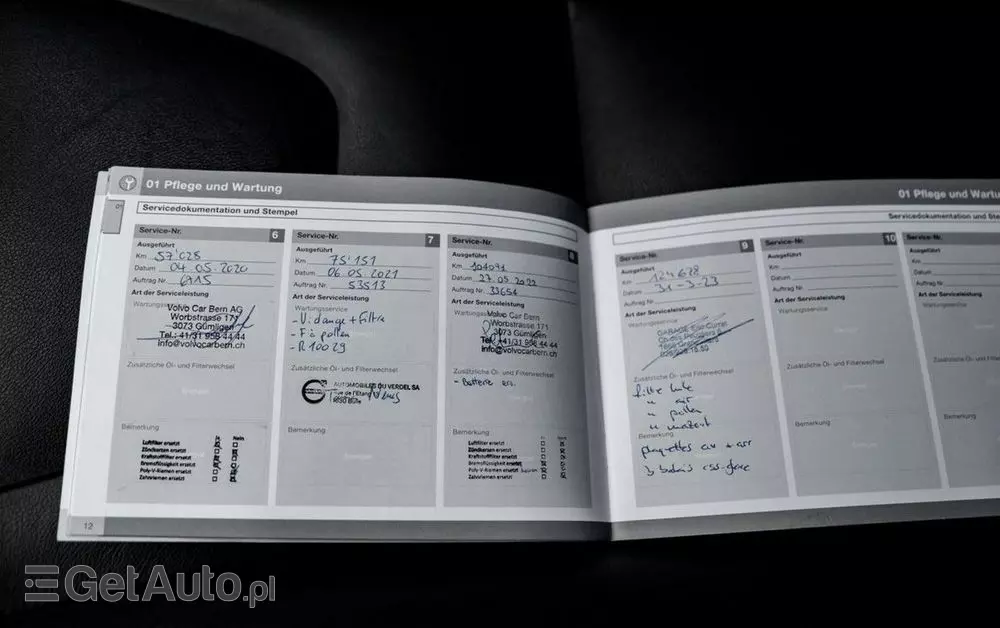 01 Pflege und Wartung
01
Servicedokumentation und Stempel
Service-Nr. 6
Ausgeführt
Km 57'028
Datum 04.05.2020
Auftrag Nr. 6715
Art der Serviceleistung
Wartungsservice
Volvo Car Bern AG
Worbstrasse 171
3073 Gümligen
Tel.: +41/31 958 44 44
info@volvocarbern.ch
Zusätzliche Öl- und Filterwechsel
Bemerkung
Ja Nein
Luftfilter ersetzt
Zündkerzen ersetzt
Kraftstofffilter ersetzt
Bremsflüssigkeit ersetzt
Poly-V-Riemen ersetzt
Zahnriemen ersetzt
12
Service-Nr. 7
Ausgeführt
Km 75'151
Datum 06.05.2021
Auftrag Nr. 53513
Art der Serviceleistung
Wartungsservice
- Vidange + filtre
- F à pollen
- R 10029
Zusätzliche Öl- und Filterwechsel
AUTOMOBILES DU VERDEL SA
rue de l'Etang
1630 Bulle
Bemerkung
Service-Nr. 8
Ausgeführt
Km 101071
Datum 27.05.2022
Auftrag Nr. 33654
Art der Serviceleistung
Wartungsservice
Volvo Car Bern
Worbstrasse 171
3073 Gümligen
Tel.: +41/31 958 44 44
info@volvocarbern.ch
Zusätzliche Öl- und Filterwechsel
- Batterie ers.
Bemerkung
Luftfilter ersetzt
Zündkerzen ersetzt
Kraftstofffilter ersetzt
Bremsflüssigkeit ersetzt
Poly-V-Riemen ersetzt
Zahnriemen ersetzt
01 Pflege und Wartu
Servicedokumentation und Ste
Service-Nr. 9
Ausgeführt
Km 124628
Datum 31-3-23
Auftrag Nr.
Art der Serviceleistung
Wartungsservice
GARAGE
Zusätzliche Öl- und Filterwechsel
filtre huile
" air
" pollen
" mazout
Bemerkung
plaquettes av + arr
3 balais ess-glace
Service-Nr. 10
Ausgeführt
Km
Datum
Auftrag Nr.
Art der Serviceleistung
Wartungsservice
Zusätzliche Öl- und Filterwechsel
Bemerkung
Service-Nr.
Ausgeführt
Km
Datum
Auftrag Nr.
Art der Serviceleistung
Wartungsservice
Zusätzliche Öl- und
Bemerkung
GetAuto.pl